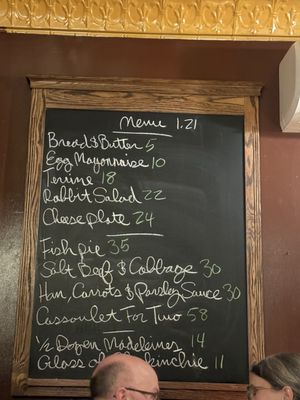 Menu 1.21
Bread & Butter 5
Egg Mayonnaise 10
Terrine 18
Rabbit Salad 22
Cheese plate 24
Fish pie 35
Salt Beef & Cabbage 30
Ham, Carrots & Parsley Sauce 30
Cassoulet For Two 58
1/2 Dozen Madeleines 14
Glass of 11